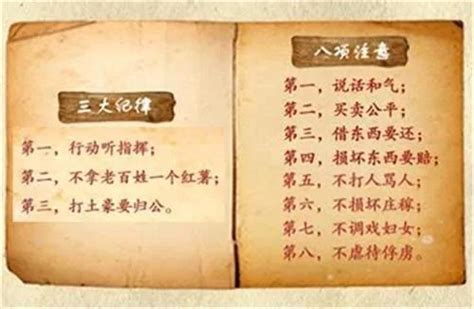 三大纪律
第一，行动听指挥；
第二，不拿老百姓一个红薯；
第三，打土豪要归公。
八项注意
第一，说话和气；
第二，买卖公平；
第三，借东西要还；
第四，损坏东西要赔；
第五，不打人骂人；
第六，不损坏庄稼；
第七，不调戏妇女；
第八，不虐待俘虏。